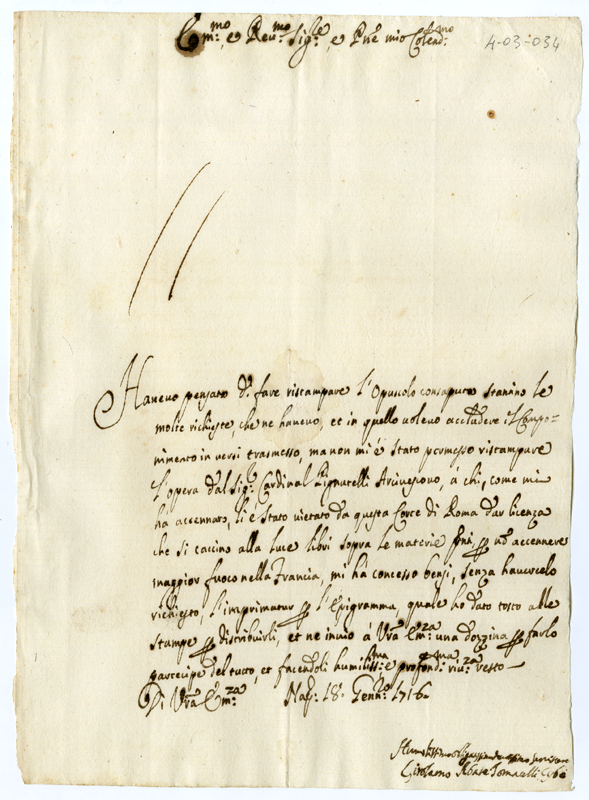 Em:mo, e Reu:mo Sig:re, e Prne mio Colend:mo
4-03-034
Haueuo pensato di fare ristampare l'Opuscolo consaputo stanino le
molte richieste, che ne haueuo, et in quello uoleuo accludere il Compo=
nimento in versi trasmesso, ma non mi è stato permesso ristampare
l'opera dal Sig:r Cardinal Pignatelli Arciuescouo, á chi, come mi
ha accennato, li è stato uietato da questa Corte di Roma dar licenza
che si caccino alla luce libri sopra le materie
accennere
maggior fuoco nella Francia, mi há concesso bensi, senza hauercelo
richiesto, l'imprimatur l'Epigramma, quale ho dato tosto alle
stampe distribuirli, et ne inuio á Vra Em:za una dozzina farlo
partecipe del tutto, et facendoli humiliss:ma e profond:ma riu:za resto
Di Vra Em:za Nap: 18. Genn:ro 1716.
Humilissimo Obligatissimo seruitore
Girolamo Abate Tomacelli Cybò